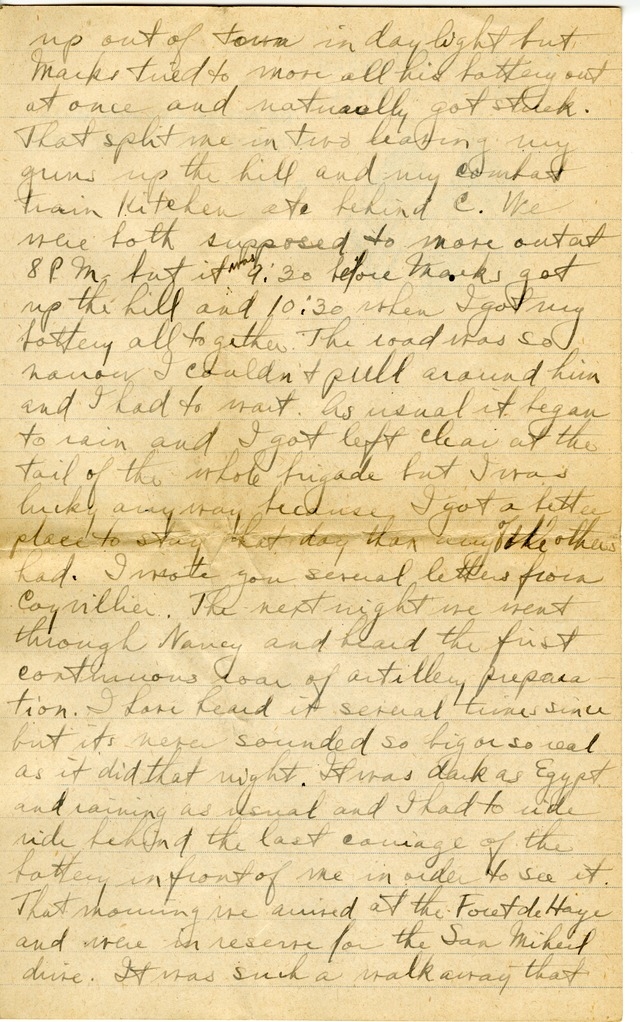 up out of town in daylight but
Marks tried to move all his battery out
at once and naturally got stuck.
That split me in two leaving my
guns up the hill and my combat
train Kitchen etc behind C. We
were both supposed to move out at
8 P.M. but it was 9:30 before Marks got
up the hill and 10:30 when I got my
battery all together. The road was so
narrow I couldn't pull around him
and I had to wait. As usual it began
to rain and I got left clear at the
tail of the whole brigade but I was
lucky anyway because I got a better
place to stay that day than any of the others
had. I wrote you several letters from
Coyvillier. The next night we went
through Nancy and heard the first
continuous roar of artillery prepara-
tion. I have heard it several times since
but its never sounded so big or so real
as it did that night. It was dark as Egypt
and raining as usual and I had to ride
ride behind the last carriage of the
battery in front of me in order to see it.
That morning we arrived at the Foret de Haye
and were in reserve for the San Mihiel
drive. It was such a walk away that